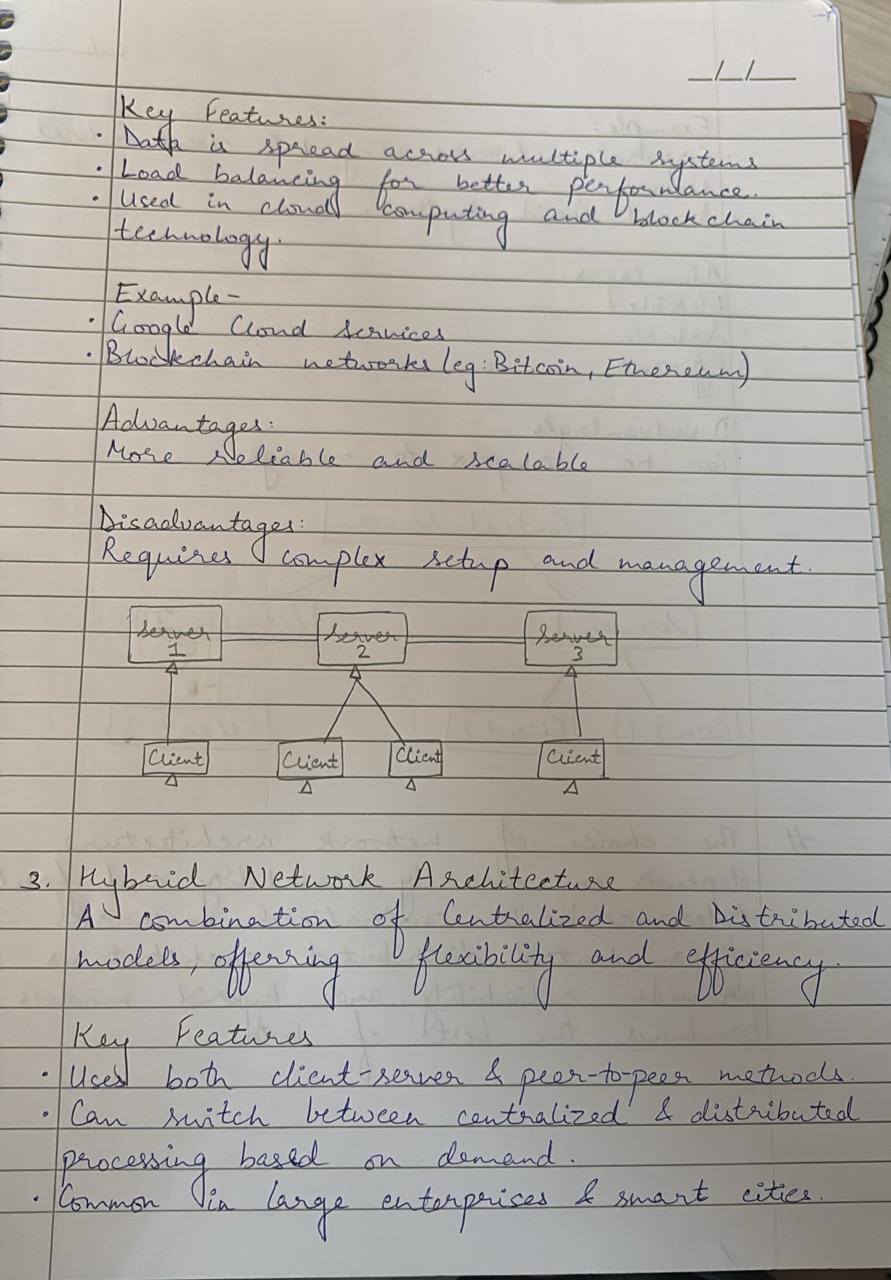 _/_/__
Key Features:
• Data is spread across multiple systems
• Load balancing for better performance.
• Used in cloud computing and blockchain
technology.
Example-
• Google Cloud Services
• Blockchain networks (eg: Bitcoin, Ethereum)
Advantages:
More reliable and scalable
Disadvantages:
Requires complex setup and management.
Server 1 Server 2 Server 3
Client Client Client Client
3. Hybrid Network Architecture
A combination of Centralized and Distributed
models, offerring flexibility and efficiency.
Key Features
• Uses both client-server & peer-to-peer methods.
• Can switch between centralized & distributed
processing based on demand.
• Common in large enterprises & smart cities.